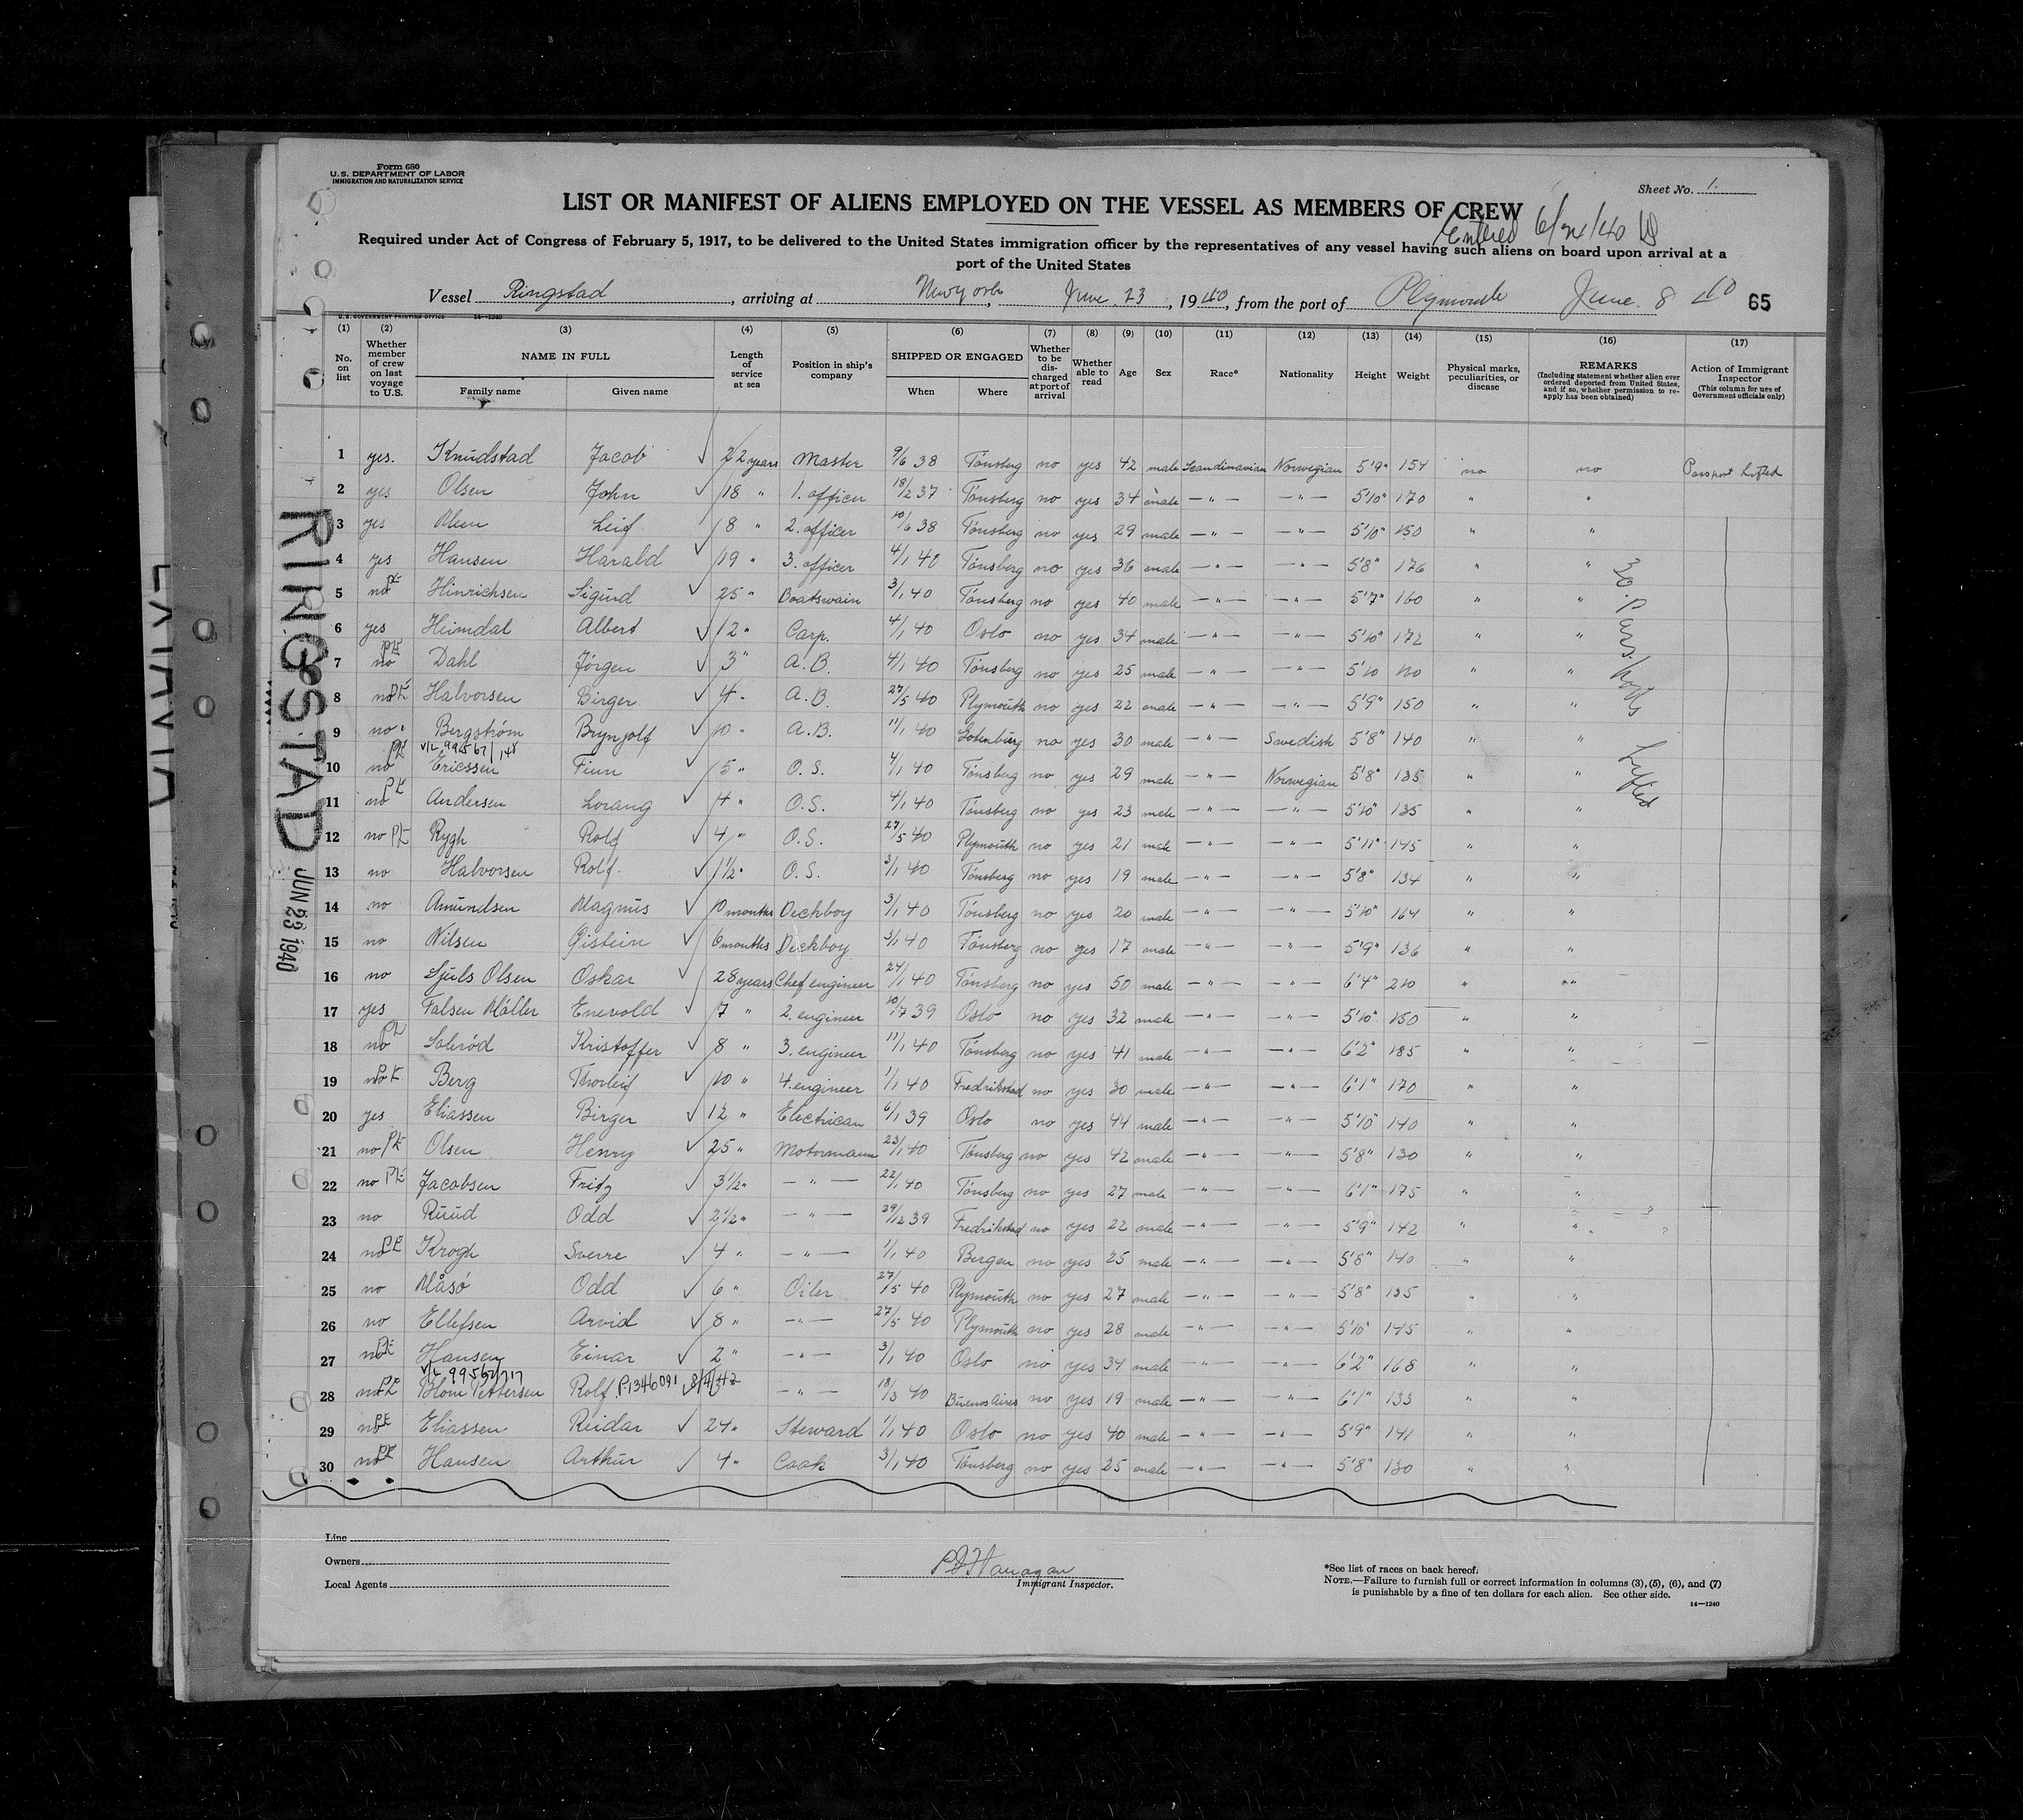 Form 680
U.S. DEPARTMENT OF LABOR
IMMIGRATION AND NATURALIZATION SERVICE
Sheet No. 1.
LIST OR MANIFEST OF ALIENS EMPLOYED ON THE VESSEL AS MEMBERS OF CREW
Entered 6/24/40
Required under Act of Congress of February 5, 1917, to be delivered to the United States immigration officer by the representatives of any vessel having such aliens on board upon arrival at a
port of the United States
Vessel Ringstad, arriving at New York, June 23, 1940, from the port of Plymouth June 8 40 65
U.S. GOVERNMENT PRINTING OFFICE 14—1240
(1) (2) (3) (4) (5) (6) (7) (8) (9) (10) (11) (12) (13) (14) (15) (16) (17)
No. on list Whether member of crew on last voyage to U.S. NAME IN FULL Family name Given name Length of service at sea Position in ship's company SHIPPED OR ENGAGED When Where Whether to be discharged at port of arrival Whether able to read Age Sex Race* Nationality Height Weight Physical marks, peculiarities, or disease REMARKS (Including statement whether alien ever ordered deported from United States, and if so, whether permission to reapply has been obtained) Action of Immigrant Inspector (This column for use of Government officials only)
1 yes. Knudstad Jacob 22 years Master 9/6 38 Tönsberg no yes 42 male Scandinavian Norwegian 5'9" 154 no no Passport Lifted
2 yes Olsen John 18 " 1. officer 18/2 37 Tönsberg no yes 34 male — " — — " — 5'10" 170 " "
3 yes Leif 8 " 2. officer 10/6 38 Tönsberg no yes 29 male — " — — " — 5'10" 150 " "
4 yes Hansen Harald 19 " 3. officer 4/1 40 Tönsberg no yes 36 male — " — — " — 5'8" 176 " "
5 no Hinrichsen Sigurd 25 " Boatswain 3/1 40 Tönsberg no yes 40 male — " — — " — 5'7" 160 " "
6 yes Heimdal Albert 12 " Carp. 4/1 40 Oslo no yes 34 male — " — — " — 5'10" 172 " "
7 no Dahl Jörgen 3 " A.B. 4/1 40 Tönsberg no yes 25 male — " — — " — 5'10 " "
8 no Halvorsen Birger 4 " A.B. 27/5 40 Plymouth no yes 22 male — " — — " — 5'9" 150 " "
9 no Bergström Brynjolf 10 " A.B. 11/1 40 Gotenburg no yes 30 male — " — Swedish 5'8" 140 " "
10 no Ericssen Finn 5 " O.S. 4/1 40 Tönsberg no yes 29 male — " — Norwegian 5'8" 135 " "
11 no Andersen Lorang 4 " O.S. 4/1 40 Tönsberg no yes 23 male — " — — " — 5'10" 135 " "
12 no Rygh Rolf 4 " O.S. 27/5 40 Plymouth no yes 21 male — " — — " — 5'11" 145 " "
13 no Halvorsen Rolf. 1½ " O.S. 3/1 40 Tönsberg no yes 19 male — " — — " — 5'8" 134 " "
14 no Amundsen Magnus 10 months Deckboy 3/1 40 Tönsberg no yes 20 male — " — — " — 5'10" 164 " "
15 no Nilsen Öistein 6 months Deckboy 3/1 40 Tönsberg no yes 17 male — " — — " — 5'9" 136 " "
16 no Sjuls Olsen Oskar 28 years Chef engineer 24/1 40 Tönsberg no yes 50 male — " — — " — 6'4" 210 " "
17 yes Falsen Möller Enevold 7 " 2. engineer 10/7 39 Oslo no yes 32 male — " — — " — 5'10" 150 " "
18 no Soleröd Kristoffer 8 " 3. engineer 11/1 40 Tönsberg no yes 41 male — " — — " — 6'2" 185 " "
19 no Berg Thorleif 10 " 4. engineer 1/1 40 Fredrikstad no yes 30 male — " — — " — 6'1" 170 " "
20 yes Eliassen Birger 12 " Electrican 6/1 39 Oslo no yes 44 male — " — — " — 5'10" 140 " "
21 no Olsen Henry 25 " Motormann 23/1 40 Tönsberg no yes 42 male — " — — " — 5'8" 130 " "
22 no Jacobsen Fritz 3½ " — " — 22/1 40 Tönsberg no yes 27 male — " — — " — 6'1" 175 " "
23 no Ruud Odd 2½ " — " — 29/12 39 Fredrikstad no yes 22 male — " — — " — 5'9" 142 " "
24 no Krogh Sverre 4 " — " — 1/1 40 Bergen no yes 25 male — " — — " — 5'8" 140 " "
25 no Måsö Odd 6 " Oiler 27/5 40 Plymouth no yes 27 male — " — — " — 5'8" 135 " "
26 no Ellefsen Arvid 8 " — " — 27/5 40 Plymouth no yes 28 male — " — — " — 5'10" 145 " "
27 no Hansen Einar 2 " — " — 3/1 40 Oslo no yes 34 male — " — — " — 6'2" 168 " "
28 no Blom Pettersen Rolf — " — 18/3 40 Buenos Aires no yes 19 male — " — — " — 6'1" 133 " "
29 no Eliassen Reidar 24 " Steward 1/1 40 Oslo no yes 40 male — " — — " — 5'9" 141 " "
30 no Hansen Arthur 4 " Cook 3/1 40 Tönsberg no yes 25 male — " — — " — 5'8" 130 " "
30 Passports Lifted
RINGSTAD JUN 23 1940
Line
Owners
Local Agents
Immigrant Inspector.
*See list of races on back hereof.
NOTE.—Failure to furnish full or correct information in columns (3), (5), (6), and (7)
is punishable by a fine of ten dollars for each alien. See other side.
14—1240